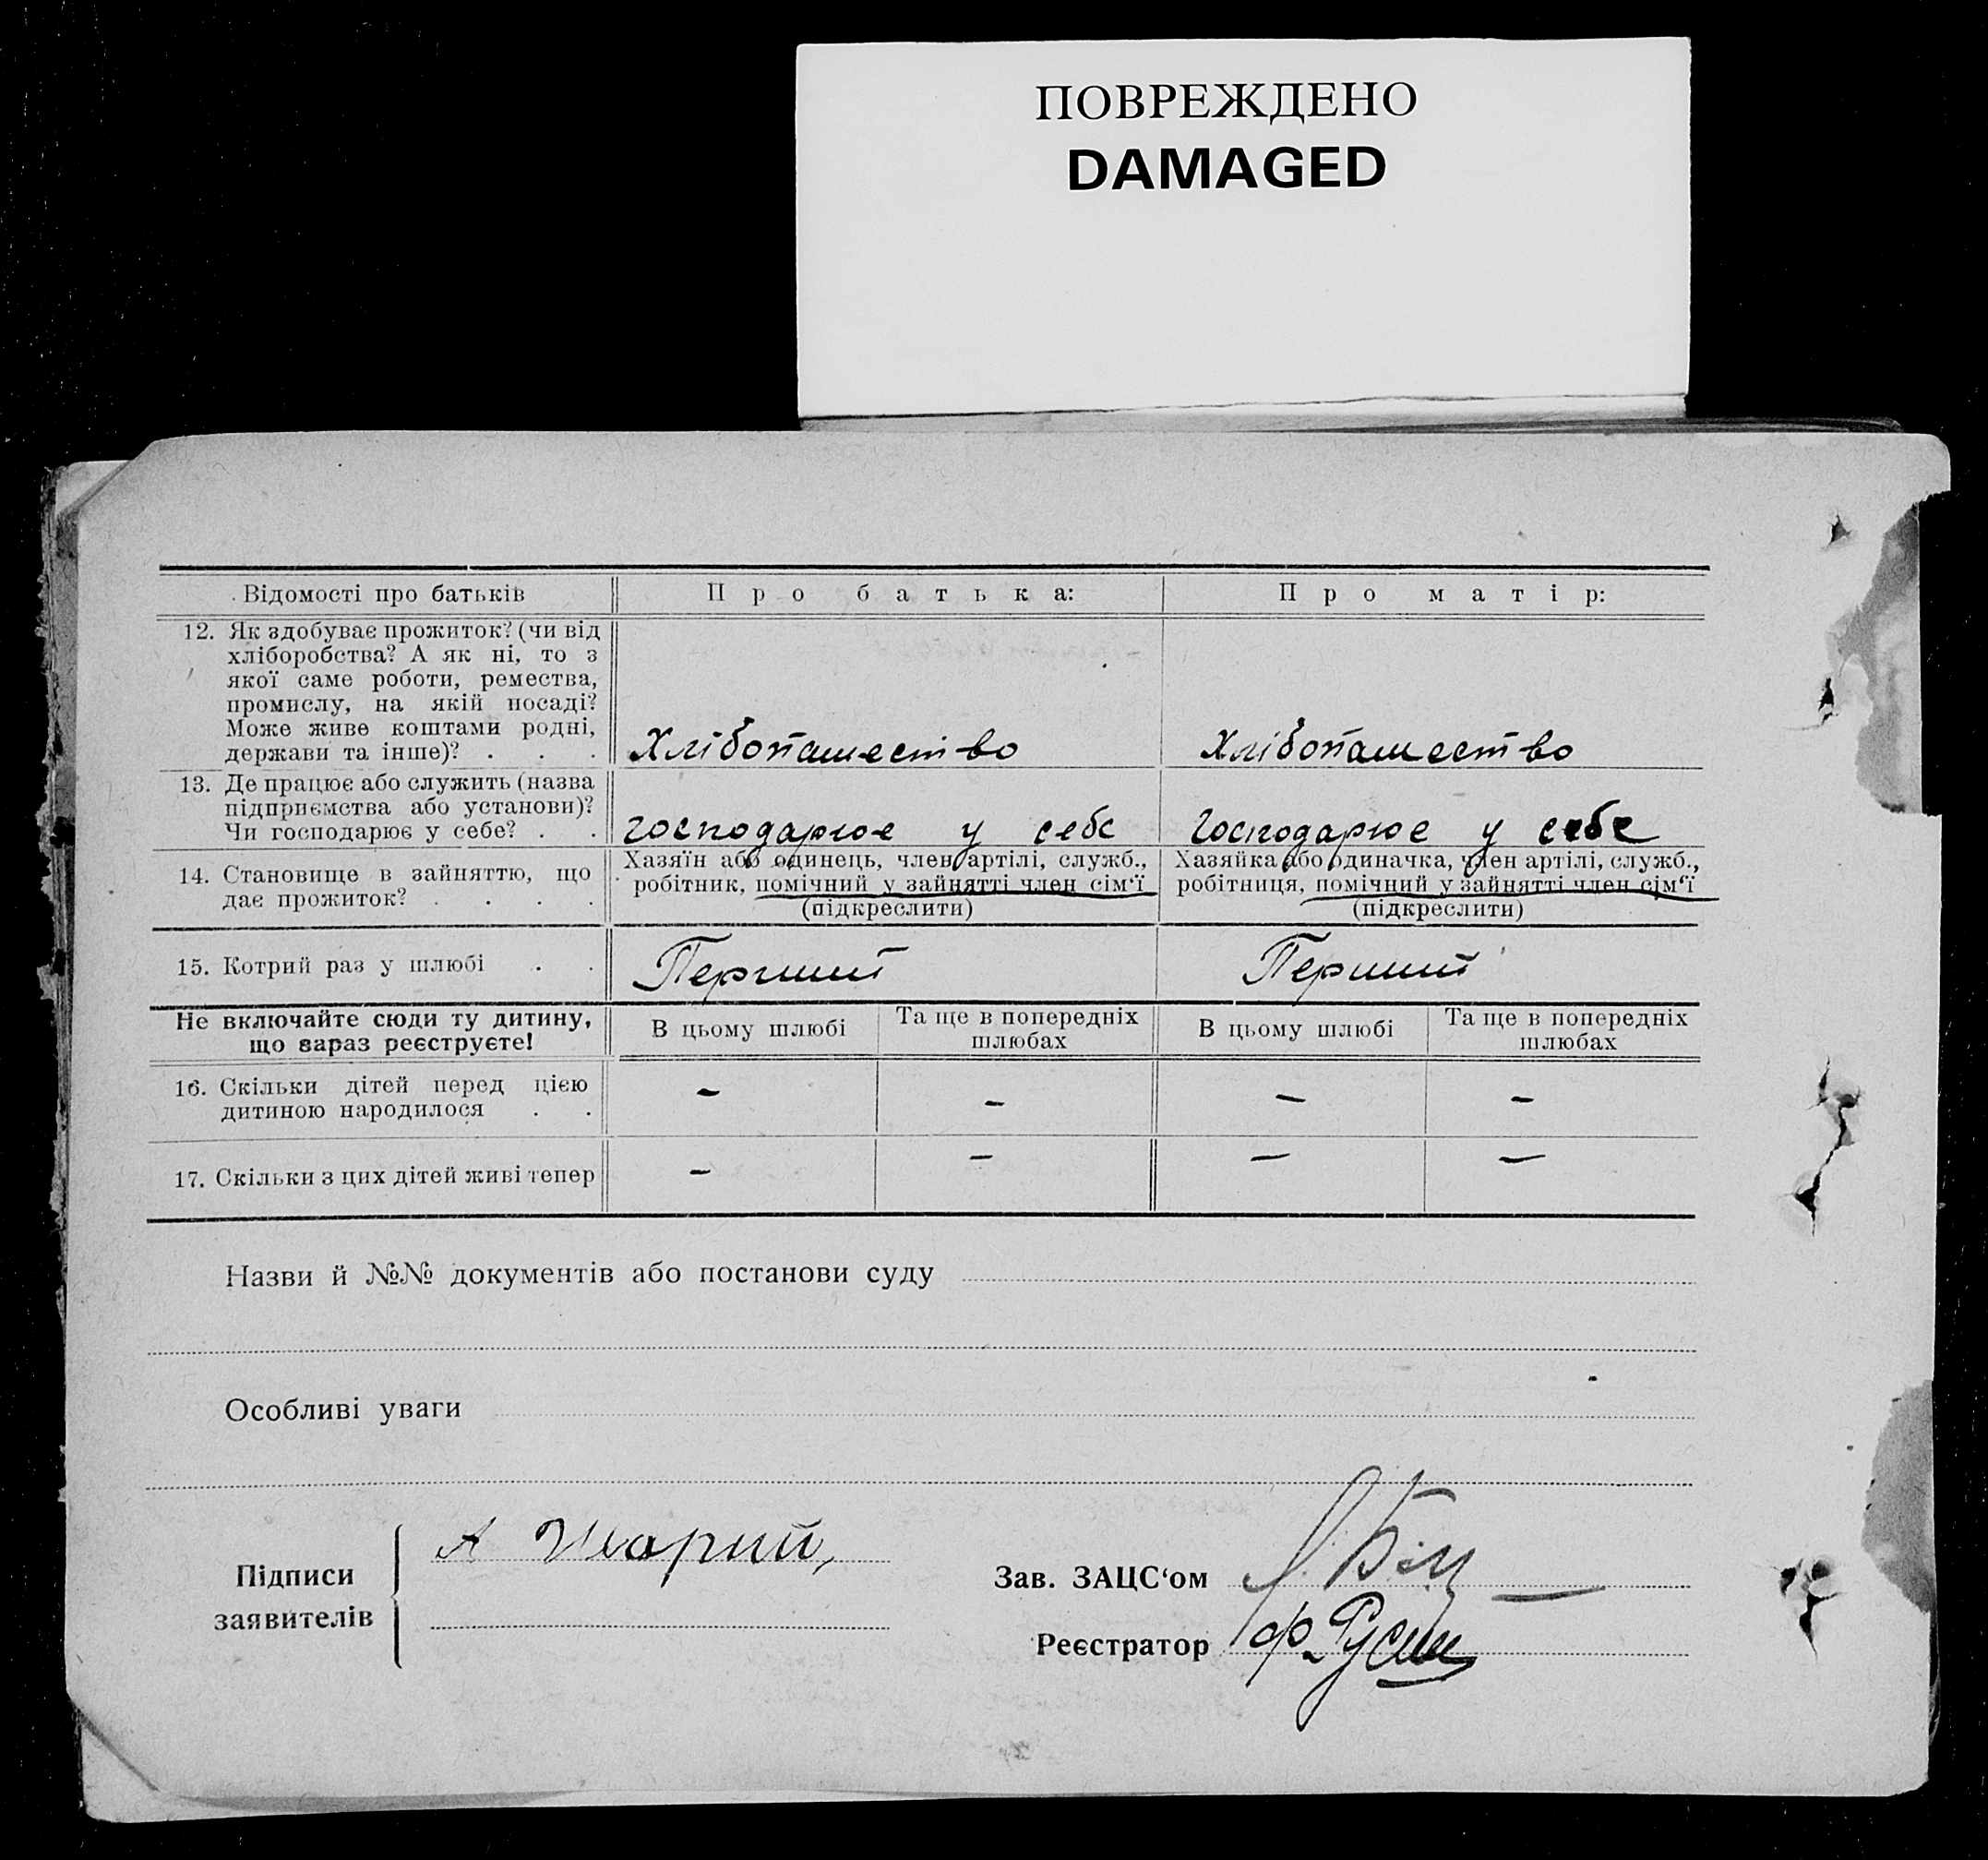 ПОВРЕЖДЕНО
DAMAGED
Відомості про батьків Про батька: Про матір:
12. Як здобуває прожиток? (чи від
хліборобства? А як ні, то з
якої саме роботи, ремества,
промислу, на якій посаді?
Може живе коштами родні,
держави та інше)? . . . Хлібопашество Хлібопашество
13. Де працює або служить (назва
підприємства або установи)?
Чи господарює у себе? . . господарює у себе Господарює у себе
14. Становище в зайняттю, що
дає прожиток? . . . .
Хазяїн або одинець, член артілі, служб.,
робітник, помічний у зайнятті член сім‘ї
(підкреслити)
Хазяйка або одиначка, член артілі, служб.,
робітниця, помічний у зайнятті член сім‘ї
(підкреслити)
15. Котрий раз у шлюбі . . Перший Перший
Не включайте сюди ту дитину,
що зараз реєструєте!
В цьому шлюбі
Та ще в попередніх
шлюбах
В цьому шлюбі
Та ще в попередніх
шлюбах
16. Скільки дітей перед цією
дитиною народилося . . – – – –
17. Скільки з цих дітей живі тепер – – – –
Назви й №№ документів або постанови суду
Особливі уваги
Підписи
заявителів
А
Зав. ЗАЦС‘ом
Реєстратор Ф. Русин